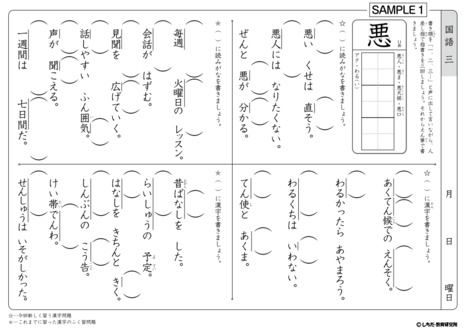 SAMPLE 1
国語 三
月 日 曜日
悪
☆（ ）に読みがなを書きましょう。
悪い くせは 直そう。
悪人には なりたくない。
ぜんと 悪が 分かる。
☆（ ）に漢字を書きましょう。
あくてん候での えんそく。
わるかったら あやまろう。
わるくちは いわない。
てん使と あくま。
＊（ ）に読みがなを書きましょう。
毎週 火曜日の レッスン。
会話が はずむ。
見聞を 広げていく。
話しやすい ふん囲気。
声が 聞こえる。
一週間は 七日間だ。
＊（ ）に漢字を書きましょう。
昔ばなしを した。
らいしゅうの 予定。
はなしを きちんと きく。
しんぶんの こう告。
けい帯でんわ。
せんしゅうは いそがしかった。
☆…今回新しく習う漢字問題
＊…これまでに習った漢字のふく習問題
©しちだ・教育研究所